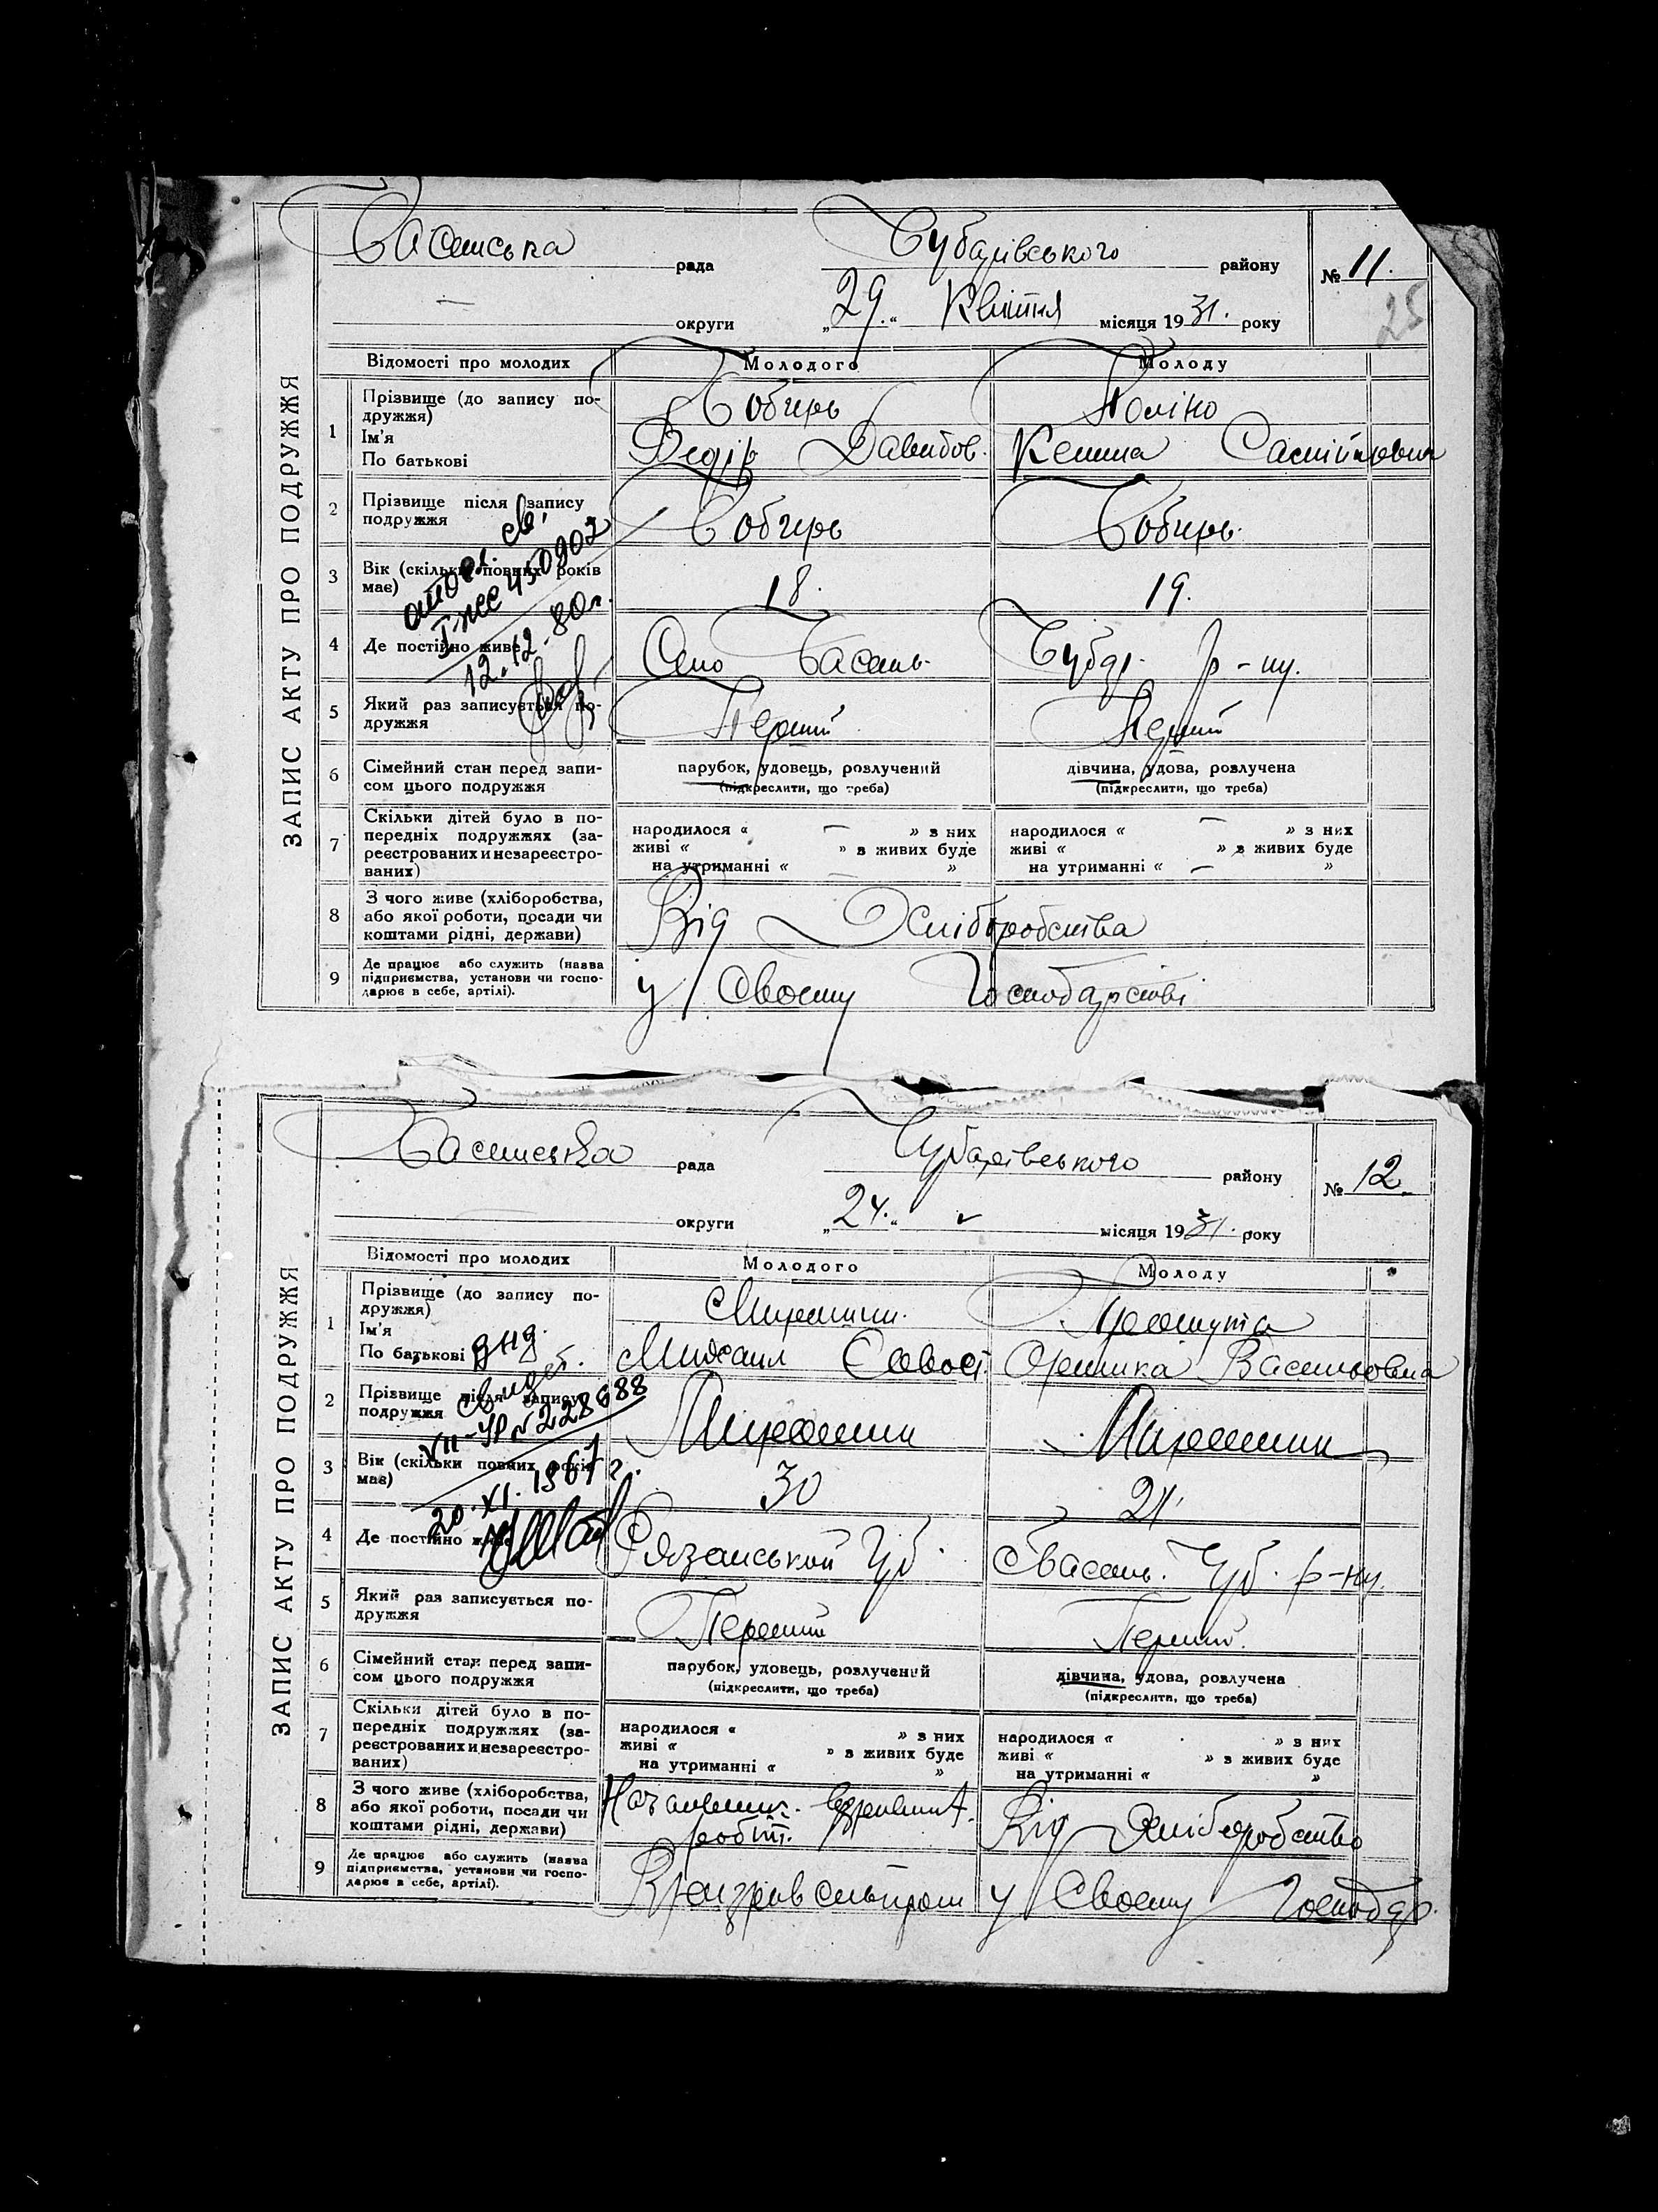 ЗАПИС АКТУ ПРО ПОДРУЖЖЯ
Басанська рада Чубарівського району № 11.
25
— округи „29.“ Квітня місяця 1931. року
Відомості про молодих Молодого Молоду
1 Прізвище (до запису подружжя) Бобирь
Ім'я Федір Давидов.
По батькові
2 Прізвище після запису подружжя Бобирь Бобирь.
3 Вік (скільки повних років має) 18. 19.
450902
12.-12-80г.
4 Де постійно живе Село Басань. Чубар. р-ну.
5 Який раз записується подружжя Перший Перший
6 Сімейний стан перед записом цього подружжя парубок, удовець, розлучений дівчина, удова, розлучена
(підкреслити, що треба) (підкреслити, що треба)
7 Скільки дітей було в попередніх подружжях (зареєстрованих и незареєстрованих) народилося « — » з них народилося « — » з них
живі « » з живих буде живі « » з живих буде
на утриманні « — » на утриманні « — »
8 З чого живе (хліборобства, або якої роботи, посади чи коштами рідні, держави) Від Хліборобства
9 Де працює або служить (назва підприємства, установи чи господарює в себе, артілі). У Своєму Господарстві
ЗАПИС АКТУ ПРО ПОДРУЖЖЯ
Басанська рада Чубарівського району № 12.
округи „24.“ місяця 1931. року
Відомості про молодих Молодого Молоду
1 Прізвище (до запису подружжя)
Ім'я Михаил Василовна
По батькові
2 Прізвище після запису подружжя
Свидет.
№228688
3 Вік (скільки повних років має) 30 21
20.XI.1967 г.
4 Де постійно живе Рязанськой Губ. Басань. Чуб. р-ну.
5 Який раз записується подружжя Перший Перший.
6 Сімейний стан перед записом цього подружжя парубок, удовець, розлучений дівчина, удова, розлучена
(підкреслити, що треба) (підкреслити, що треба)
7 Скільки дітей було в попередніх подружжях (зареєстрованих и незареєстрованих) народилося « » з них народилося « » з них
живі « » з живих буде живі « » з живих буде
на утриманні « » на утриманні « »
8 З чого живе (хліборобства, або якої роботи, посади чи коштами рідні, держави) робіт. Від Хліборобство
9 Де працює або служить (назва підприємства, установи чи господарює в себе, артілі). У Своєму Господар.